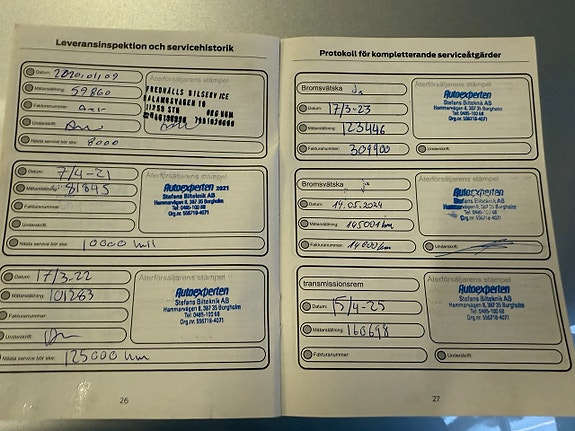 Leveransinspektion och servicehistorik
Datum: 2020/01/09
Återförsäljarens stämpel
Mätarställning: 59860
Fakturanummer:
Underskrift:
Nästa service bör ske: 8000
FREDHÄLLS BILSERVICE
Datum: 7/4-21
Återförsäljarens stämpel
Mätarställning: 81845
Fakturanummer:
Underskrift:
Nästa service bör ske: 10000 mil
Autoexperten 2021
Stefans Bilteknik AB
Hammarvägen 8, 387 35 Borgholm
Tel: 0485-100 68
Org.nr. 556718-4071
Datum: 17/3-22
Återförsäljarens stämpel
Mätarställning: 101263
Fakturanummer:
Underskrift:
Nästa service bör ske: 125000 km
Autoexperten
Stefans Bilteknik AB
Hammarvägen 8, 387 35 Borgholm
Tel: 0485-100 68
Org.nr. 556718-4071
26
Protokoll för kompletterande serviceåtgärder
Bromsvätska Ja
Återförsäljarens stämpel
Datum: 17/3-23
Mätarställning: 123446
Fakturanummer: 309900
Underskrift:
Autoexperten
Stefans Bilteknik AB
Hammarvägen 8, 387 35 Borgholm
Tel: 0485-100 68
Org.nr. 556718-4071
Bromsvätska
Återförsäljarens stämpel
Datum: 14.05.2024
Mätarställning: 145001 km
Fakturanummer: 14000 km
Underskrift:
Autoexperten
Stefans Bilteknik AB
Hammarvägen 8, 387 35 Borgholm
Tel: 0485-100 68
Org.nr. 556718-4071
transmissionsrem
Återförsäljarens stämpel
Datum: 15/4-25
Mätarställning: 160698
Fakturanummer:
Underskrift:
Autoexperten
Stefans Bilteknik AB
Hammarvägen 8, 387 35 Borgholm
Tel: 0485-100 68
Org.nr. 556718-4071
27